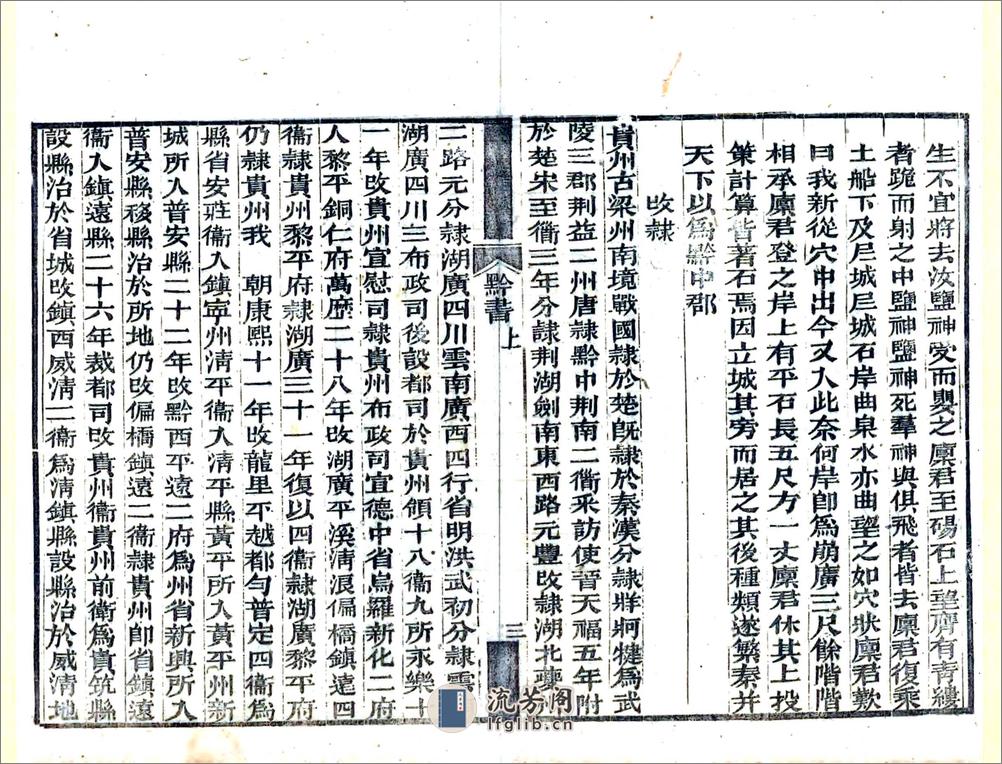 生不宜將去汝鹽神受而嬰之廪君至碭石上望膺有青縷
者跪而射之中鹽神鹽神死羣神與俱飛者皆去廪君復乘
土船下及尼城尼城石岸曲泉水亦曲望之如穴狀廪君歎
曰我新從穴中出今又入此奈何岸即爲崩廣三尺餘階階
相承廪君登之岸上有平石長五尺方一丈廪君休其上投
策計算皆著石焉因立城其旁而居之其後種類遂繁秦并
天下以爲黔中郡
改隸
貴州古梁州南境戰國隸於楚旣隸於秦漢分隸牂牁犍爲武
陵三郡荆益二州唐隸黔中荆南二衟采訪使晉天福五年附
於楚宋至衟三年分隸荆湖劍南東西路元豐改隸湖北夔
黔書 上
三
二路元分隸湖廣四川雲南廣西四行省明洪武初分隸雲
湖廣四川三布政司後設都司於貴州領十八衞九所永樂十
一年改貴州宣慰司隸貴州布政司宣德中省烏羅新化二府
人黎平銅仁府萬歷二十八年改湖廣平溪淸浪偏橋鎮遠四
衞隸貴州黎平府隸湖廣三十一年復以四衞隸湖廣黎平府
仍隸貴州我 朝康熙十一年改龍里平越都勻普定四衞爲
縣省安莊衞入鎮寧州淸平衞入淸平縣黃平所入黃平州新
城所入普安縣二十二年改黔西平遠二府爲州省新興所入
普安縣移縣治於所地仍改偏橋鎮遠二衞隸貴州卽省鎮遠
衞入鎮遠縣二十六年裁都司改貴州衞貴州前衞爲貴筑縣
設縣治於省城改鎮西威淸二衞爲淸鎮縣設縣治於威淸地
流芳阁
lfglib.cn